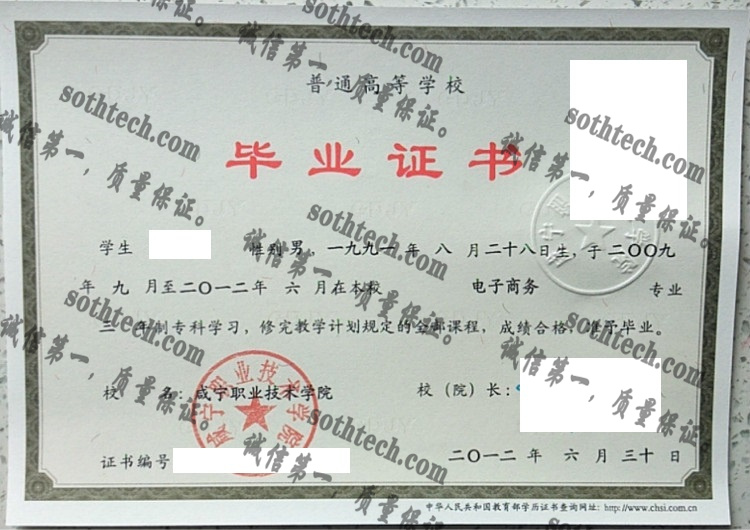 普通高等学校
毕业证书
学生 性别 男 一九九一年 八 月 二十八日生，于 二〇〇九
年 九 月至 二〇一二年 六 月在本校 电子商务 专业
三 年制专科学习，修完教学计划规定的全部课程，成绩合格，准予毕业。
校 名：咸宁职业技术学院 校（院）长：
证书编号 二〇一二 年 六 月 三十 日
中华人民共和国教育部学历证书查询网址：http://www.chsi.com.cn
咸宁职业技术学院
sothtech.com
诚信第一，质量保证。
sothtech.com
诚信第一，质量保证。
sothtech.com
诚信第一，质量保证。
sothtech.com
诚信第一，质量保证。
sothtech.com
诚信第一，质量保证。
sothtech.com
诚信第一，质量保证。
sothtech.com
诚信第一，质量保证。
sothtech.com
诚信第一，质量保证。